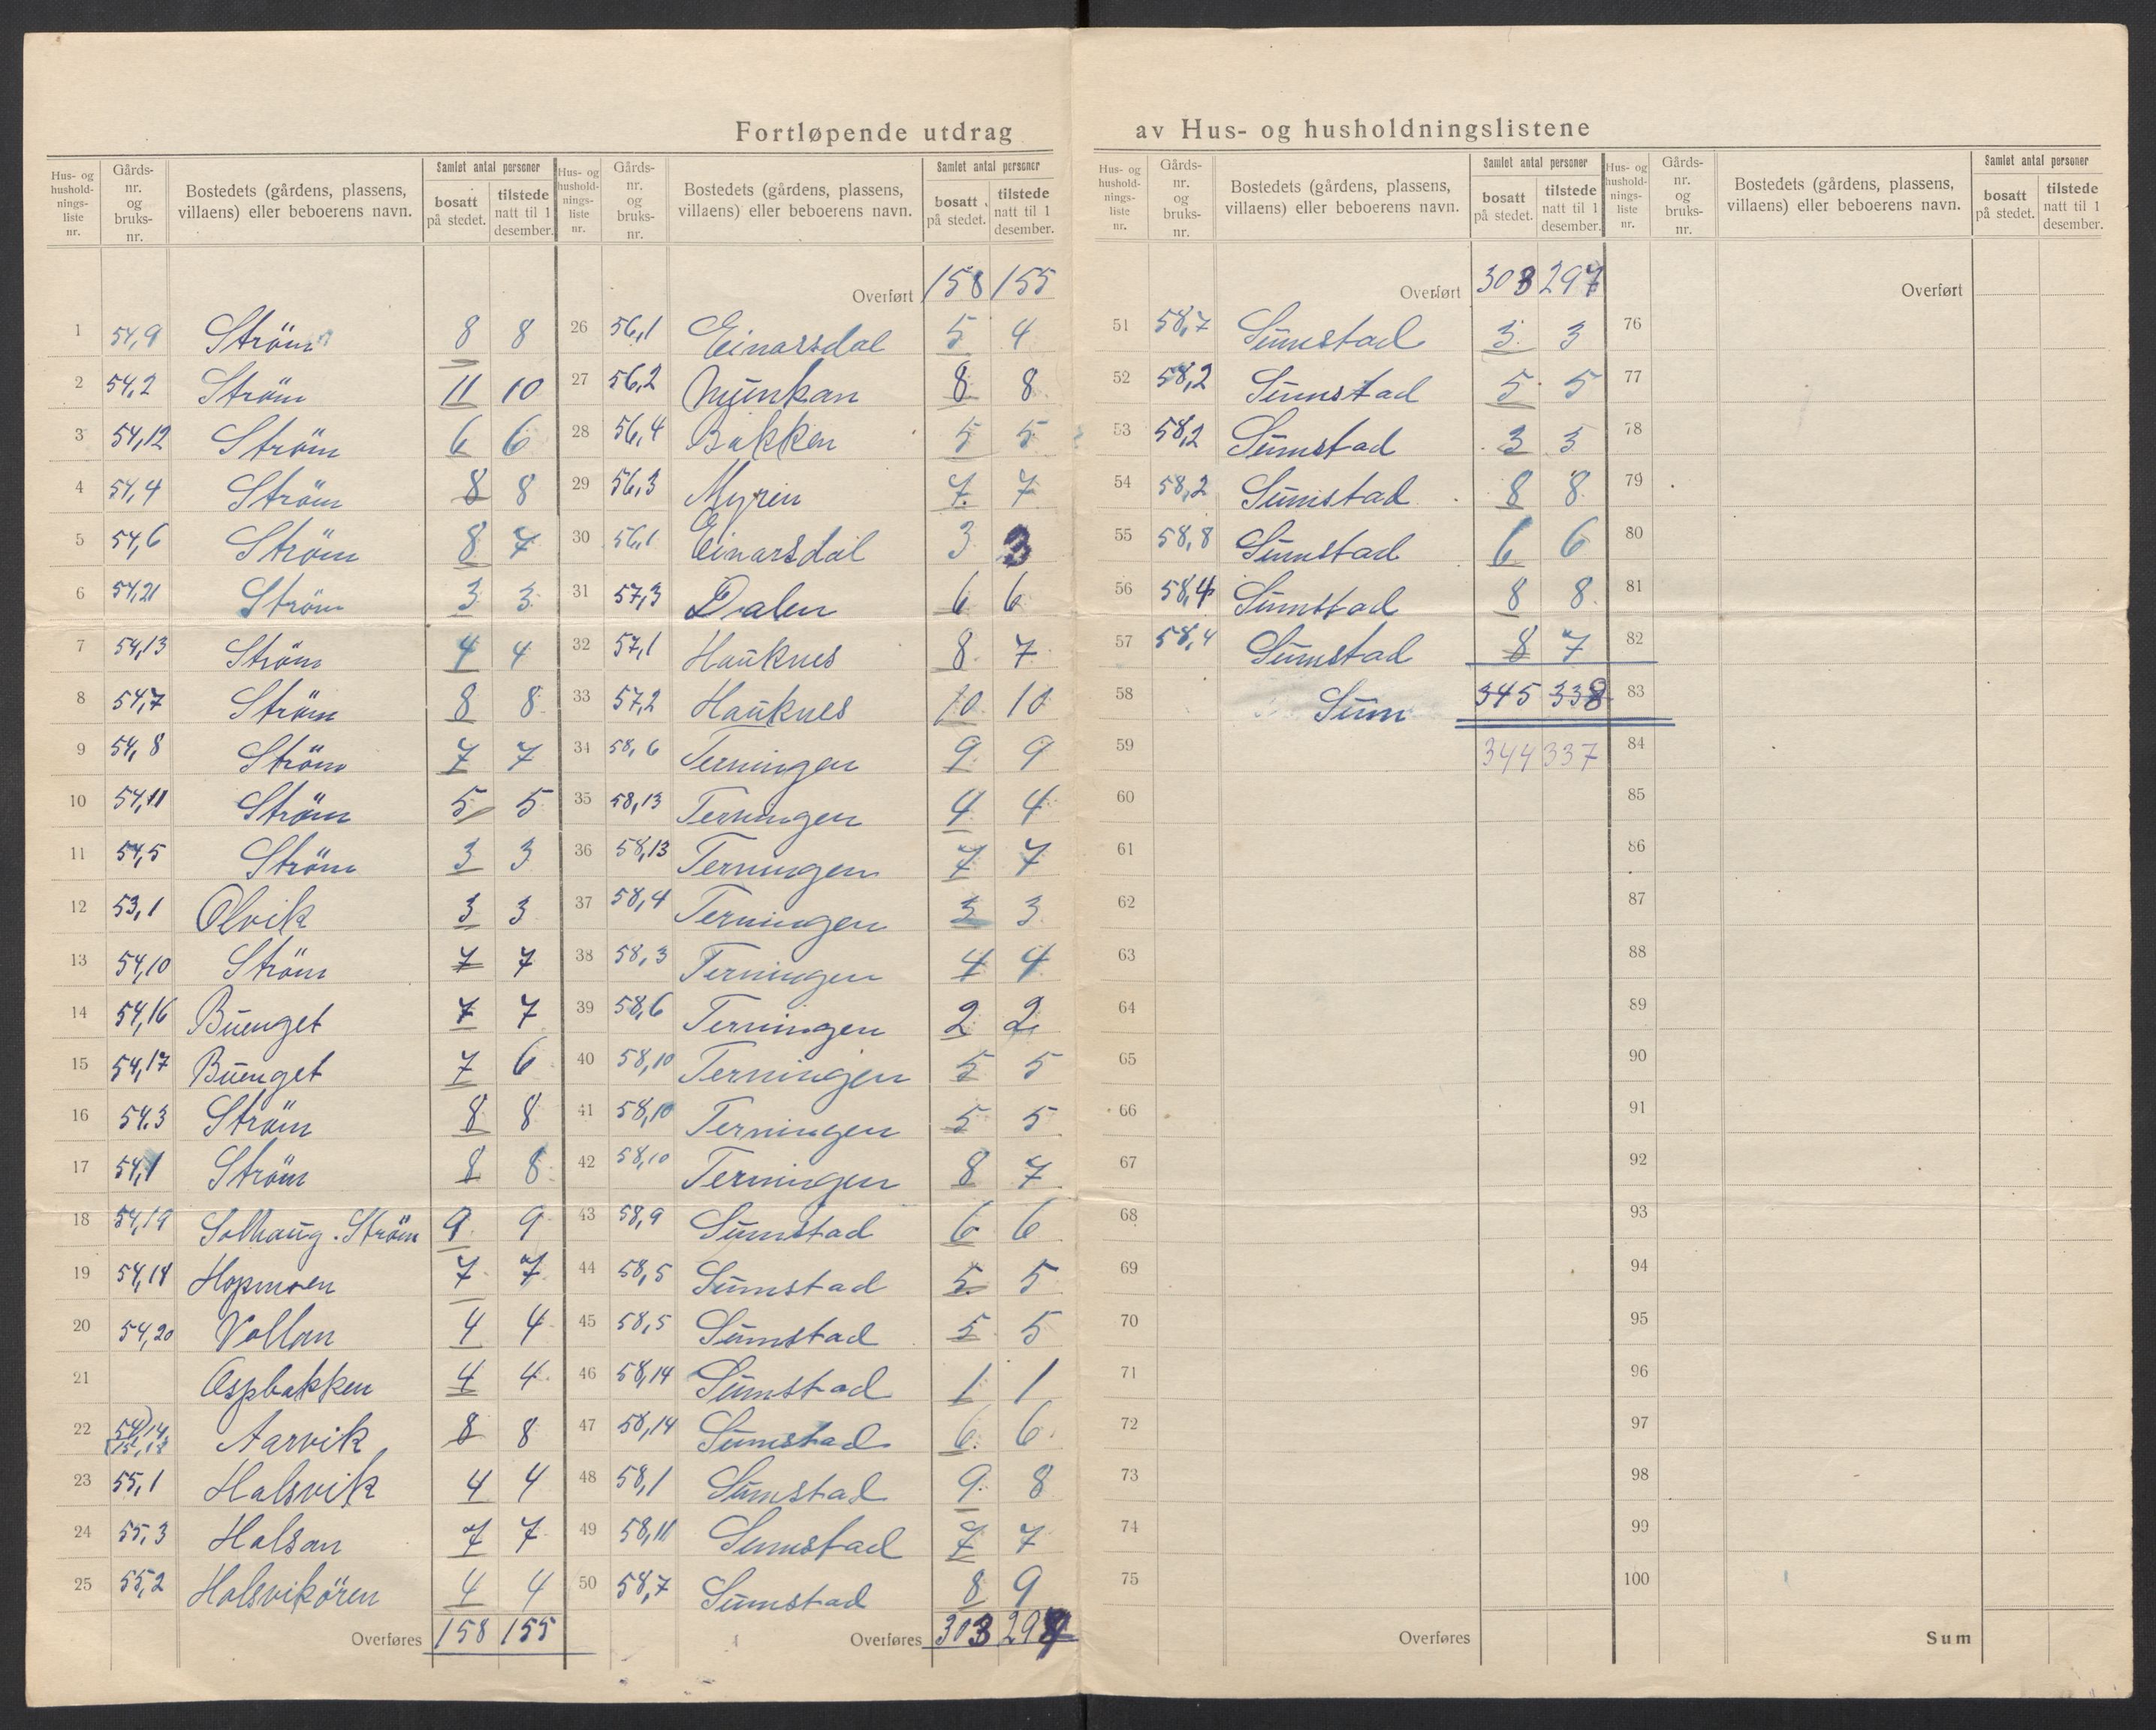 Fortløpende utdrag av Hus- og husholdningslistene
Hus- og hushold-nings-liste nr. Gårds-nr. og bruks-nr. Bostedets (gårdens, plassens, villaens) eller beboerens navn. Samlet antal personer bosatt på stedet. tilstede natt til 1 desember.
1 54,9 Ström 8 8
2 54,2 Ström 11 10
3 54,12 Ström 6 6
4 54,4 Ström 8 8
5 54,6 Ström 8 7
6 54,21 Ström 3 3
7 54,13 Ström 4 4
8 54,7 Ström 8 8
9 54,8 Ström 7 7
10 54,11 Ström 5 5
11 54,5 Ström 3 3
12 53,1 Olvik 3 3
13 54,10 Ström 7 7
14 54,16 Buenget 7 7
15 54,17 Buenget 7 6
16 54.3 Ström 8 8
17 54,1 Ström 8 8
18 54,19 Solhaug. Ström 9 9
19 54,14 Hopmoen 7 7
20 54,20 Vollan 4 4
21 Ospbakken 4 4
22 54,14 Aarvik 8 8
23 55,1 Halsvik 4 4
24 55,3 Halsan 7 7
25 55,2 Halsvikören 4 4
Overføres 158 155
Hus- og hushold-nings-liste nr. Gårds-nr. og bruks-nr. Bostedets (gårdens, plassens, villaens) eller beboerens navn. Samlet antal personer bosatt på stedet. tilstede natt til 1 desember.
Overført 158 155
26 56,1 Einarsdal 5 4
27 56,2 Munkan 8 8
28 56,4 Bakken 5 5
29 56,3 Myren 7 7
30 56,1 Einarsdal 3 3
31 57,3 Dalen 6 6
32 57,1 Hauknes 8 7
33 57,2 Hauknes 10 10
34 58,6 Terningen 9 9
35 58,13 Terningen 4 4
36 58,13 Terningen 7 7
37 58,4 Terningen 3 3
38 58,3 Terningen 4 4
39 58,6 Terningen 2 2
40 58,10 Terningen 5 5
41 58,10 Terningen 5 5
42 58,10 Terningen 8 7
43 58,9 Sumstad 6 6
44 58,5 Sumstad 5 5
45 58,5 Sumstad 5 5
46 58,14 Sumstad 1 1
47 58,14 Sumstad 6 6
48 58,1 Sumstad 9 8
49 58,11 Sumstad 7 7
50 58,7 Sumstad 8 9
Overføres 303
Hus- og hushold-nings-liste nr. Gårds-nr. og bruks-nr. Bostedets (gårdens, plassens, villaens) eller beboerens navn. Samlet antal personer bosatt på stedet. tilstede natt til 1 desember.
Overført 303 297
51 58,7 Sumstad 3 3
52 58,2 Sumstad 5 5
53 58,2 Sumstad 3 3
54 58,2 Sumstad 8 8
55 58,8 Sumstad 6 6
56 58,4 Sumstad 8 8
57 58,4 Sumstad 8 7
58 Sum 345 338
59 344 337
60
61
62
63
64
65
66
67
68
69
70
71
72
73
74
75
Overføres
Hus- og hushold-nings-liste nr. Gårds-nr. og bruks-nr. Bostedets (gårdens, plassens, villaens) eller beboerens navn. Samlet antal personer bosatt på stedet. tilstede natt til 1 desember.
Overført
76
77
78
79
80
81
82
83
84
85
86
87
88
89
90
91
92
93
94
95
96
97
98
99
100
Sum